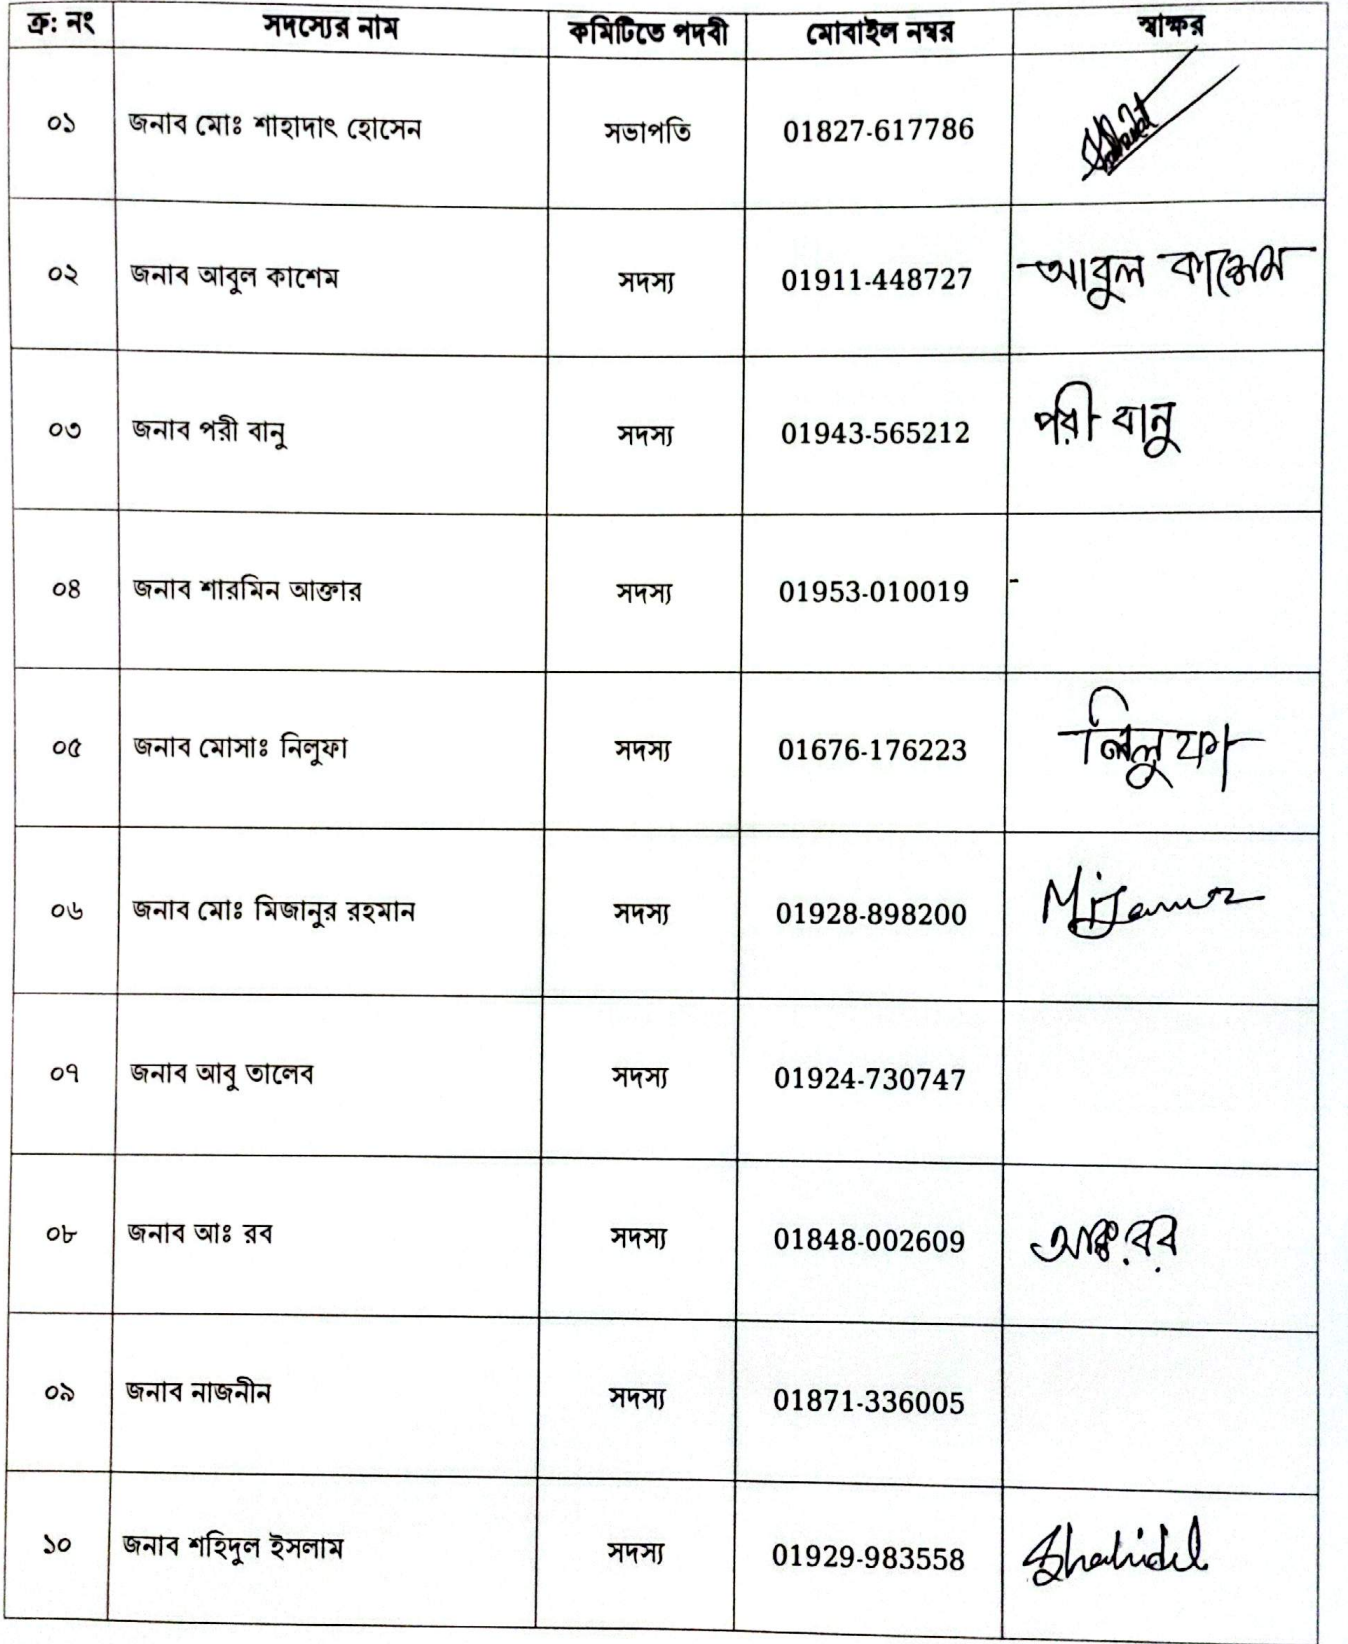 ক্র: নং সদস্যের নাম কমিটিতে পদবী মোবাইল নম্বর স্বাক্ষর
০১ জনাব মোঃ শাহাদাৎ হোসেন সভাপতি 01827-617786
০২ জনাব আবুল কাশেম সদস্য 01911-448727 আবুল কাশেম
০৩ জনাব পরী বানু সদস্য 01943-565212 পরী বানু
০৪ জনাব শারমিন আক্তার সদস্য 01953-010019 -
০৫ জনাব মোসাঃ নিলুফা সদস্য 01676-176223 নিলুফা
০৬ জনাব মোঃ মিজানুর রহমান সদস্য 01928-898200
০৭ জনাব আবু তালেব সদস্য 01924-730747
০৮ জনাব আঃ রব সদস্য 01848-002609 রব
০৯ জনাব নাজনীন সদস্য 01871-336005
১০ জনাব শহিদুল ইসলাম সদস্য 01929-983558